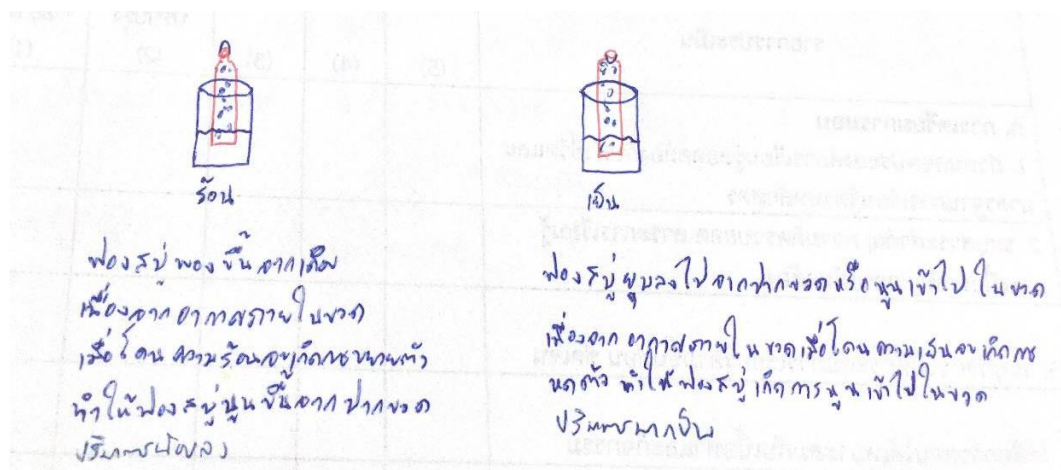 ร้อน
ฟองสบู่พองขึ้นจากเดิม
เนื่องจากอากาศภายในขวด
เมื่อโดนความร้อนจะเกิดการขยายตัว
ทำให้ฟองสบู่นูนขึ้นจากปากขวด
ปริมาตรน้อยลง
เย็น
ฟองสบู่ยุบลงไปจากปากขวดหรือนูนเข้าไปในขวด
เนื่องจากอากาศภายในขวดเมื่อโดนความเย็นจะเกิดการ
หดตัว ทำให้ฟองสบู่เกิดการนูนเข้าไปในขวด
ปริมาตรมากขึ้น